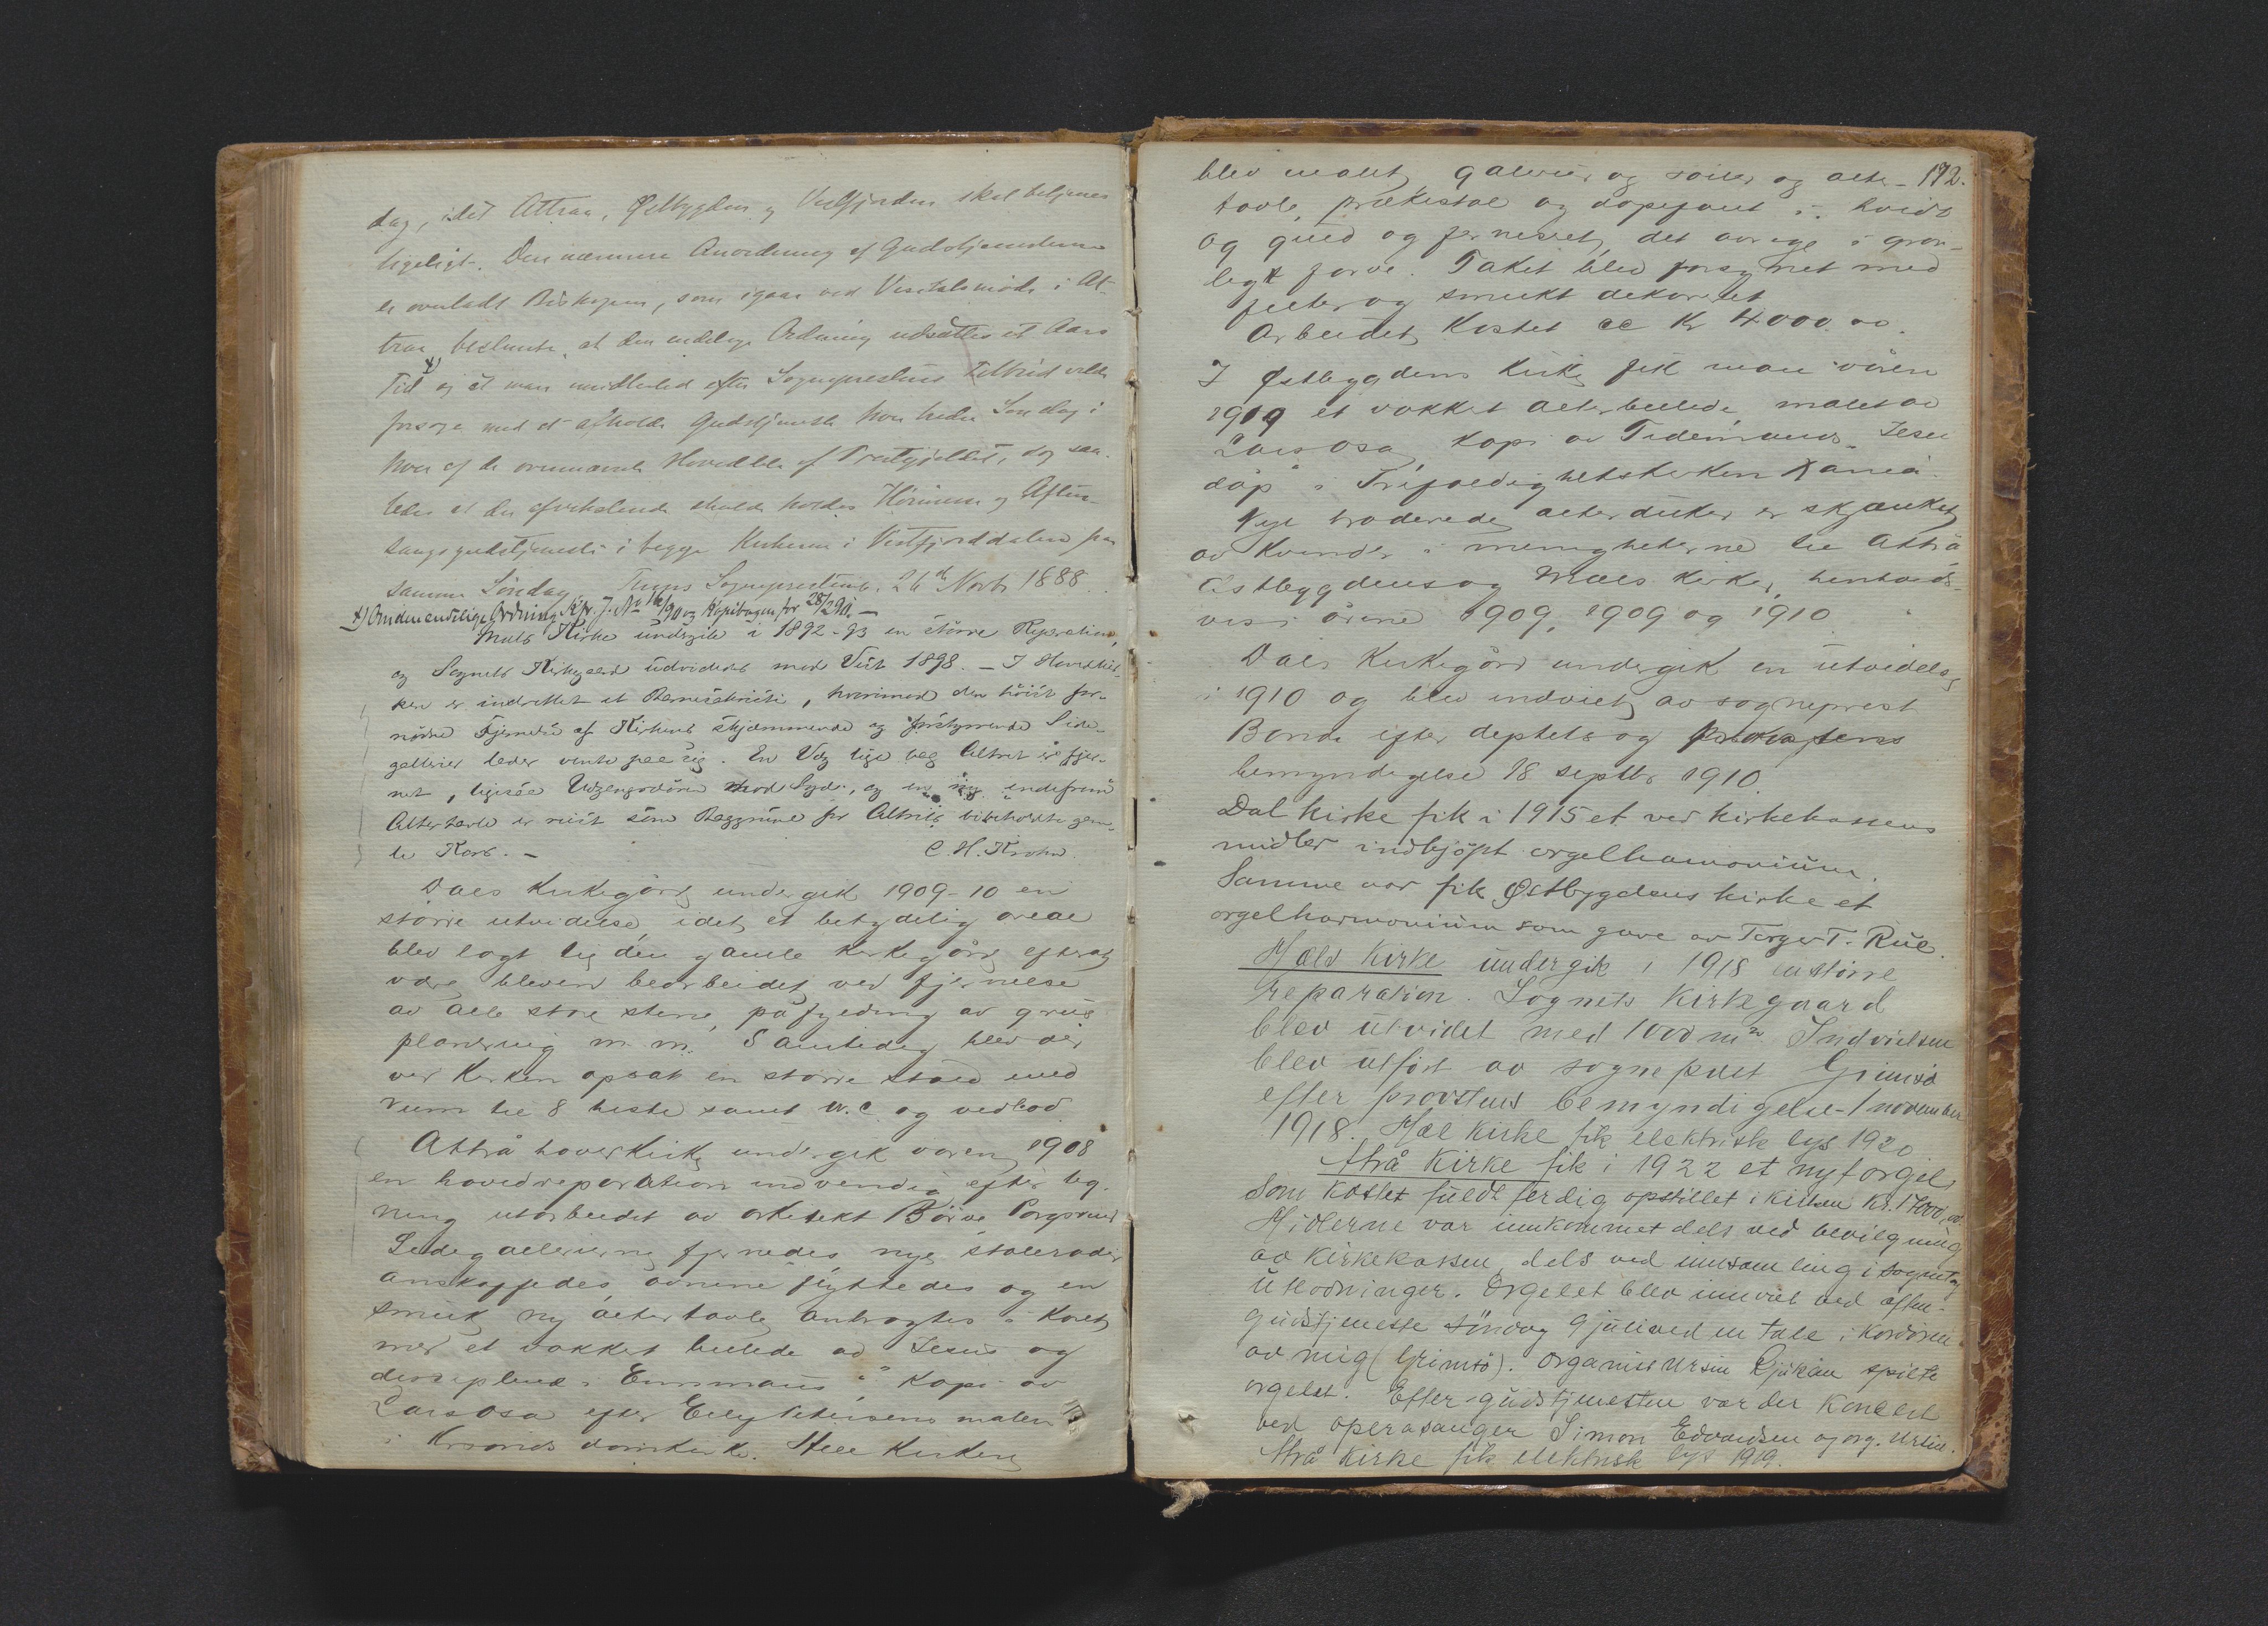 dag, idet Attraa, Østbygden og Vestfjorden skal betjenes
ligeligt. Den nærmere Anordning af Gudstjenesterne
er overladt Biskopen, som igaar ved Visitatsmøde i At-
traa bestemte, at den endelige Ordning udsættes et Aars
Tid x) og at man imidlertid efter Sognepræstens Tilbud vilde
forsøge med at afholde Gudstjeneste hver tredie Søndag i
hver af de ovennævnte Hoveddele af Præstegjeldet, dog saa-
ledes at der afvexlende skulde holdes Høimesse og Aften-
sangsgudstjeneste i begge Kirkerne i Vestfjorddalen paa
samme Søndag. Tinns Sognepræstemb. 26de Novbr 1888.
x) Om den endelige Ordning kfr. J. No 16/90 og Kopibogen for 28/2 90. —
Mæls Kirke undergik i 1892-93 en større Reparation,
og Sognets Kirkegaard udvidedes mod Vest 1898. — I Hovedkir-
ken er indrettet et Barnesakristi, hvorimod den høist for-
nødne Fjernelse af Kirkens skjæmmende og forstyrrende Side-
gallerier lader vente paa sig. En Væg lige bag Altret er fjer-
net, ligesaa Udgangsdøren mod Syd, og en ny
Altertavle er reist som Baggrund for Altrets bibeholdte gam-
le Kors. — C. H. Krohn
Dals Kirkegård undergik 1909-10 en
større utvidelse, idet et betydelig areal
blev lagt til den gamle kirkegård efterat
være bleven bearbeidet ved fjernelse
av alle store stene, påfylding av grus
planering m. m. Samtidig blev der
ved Kirken opsat en større stald med
rum til 8 heste samt W.C og vedbod
Attrå hovedkirke undergik våren 1908
en hovedreparation indvendig efter teg-
ning utarbeidet av arkitekt Børve Porsgrund
Sidegalerierne fjernedes, nye stolerader
anskaffedes, ovnene flyttedes og en
smuk ny altertavle anbragtes i Koret
med et vakkert billede av "Jesus og
disciplene i Emmaus", Kopi av
Lars Osa efter Eilif Petersens maleri
i Krsands domkirke. Hele Kirken
172.
blev malet, galerier og søiler og alter-
tavle, prækestol og døpefont i hvidt
og guld og fernisert, det øvrige i grøn-
legt farve. Taket blev forsynet med
felter og smukt dekorert
Arbeidet kostet ca Kr 4000.00.
I Østbygdens kirke fik man våren
1909 et vakkert alterbillede, malet av
Lars Osa, kopi av Tidemands "Jesu
dåp" i Trefoldighetskirken Kania
Nye broderede alterduker er skjænket
av Kvinder i menigheterne til Attrå
Østbygdens og Mæls Kirker, henholds-
vis i årene 1909, 1909 og 1910.
Dals Kirkegård undergik en utvidelse
i 1910 og blev indviet av sogneprest
Bonde efter deptets og provstens
bemyndigelse 18 septbr 1910.
Dal kirke fik i 1915 et ved kirkekassens
midler indkjöpt orgelharmonium.
Samme aar fik Østbygdens kirke et
orgelharmonium som gave av Torger T. Rue.
Mæls Kirke undergik i 1918 en större
reparation. Sognets Kirkegaard
blev utvidet med 1000 m2 Indvielsen
blev utført av sogneprest Grimsö
efter provstens bemyndigelse 1 november
1918. Mæl Kirke fik elektrisk lys 1920
Atrå Kirke fik i 1922 et nyt orgel,
som kostet fuldt ferdig opstillet i kirken Kr. 17000,00
Midlerne var innkommet dels ved bevilgning
av Kirkekassen, dels ved innsamling i sognet og
utlodninger. Orgelet blev innviet ved aften-
gudstjeneste söndag 9 juli ved en tale i Kordören
av mig (Grimsö). Organist Ursin Rjukan spilte
orgelet. Efter gudstjenesten var der Koncert
ved operasanger Simon Edvardsen og org. Ursin.
Atrå Kirke fik elektrisk lys 1919.